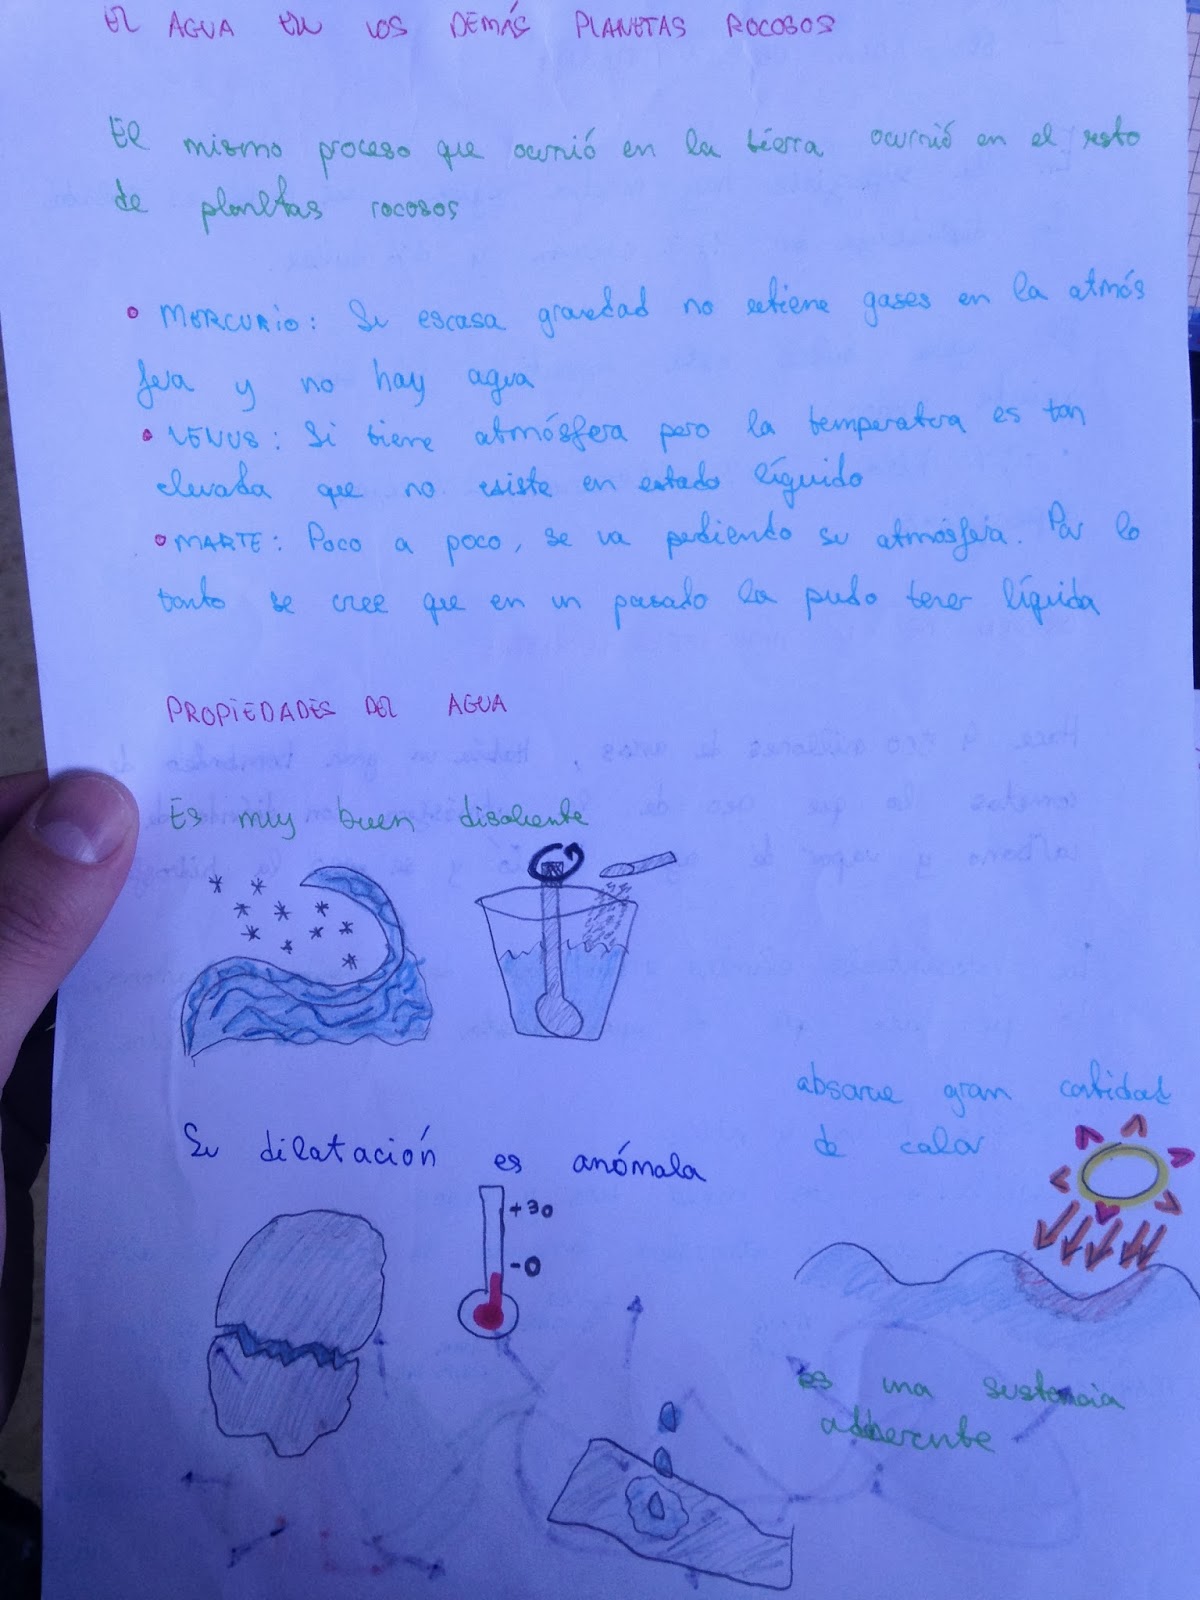 EL AGUA EN LOS DEMÁS PLANETAS ROCOSOS
El mismo proceso que ocurrió en la tierra ocurrió en el resto
de planetas rocosos
• MERCURIO: Su escasa gravedad no retiene gases en la atmós
fera y no hay agua
• VENUS: Si tiene atmósfera pero la temperatura es tan
elevada que no existe en estado líquido
• MARTE: Poco a poco, se va perdiendo su atmósfera. Por lo
tanto se cree que en un pasado la pudo tener líquida
PROPIEDADES DEL AGUA
Es muy buen disolvente
absorve gran cantidad
de calor
Su dilatación es anómala
+30
-0
es una sustencia
adherente